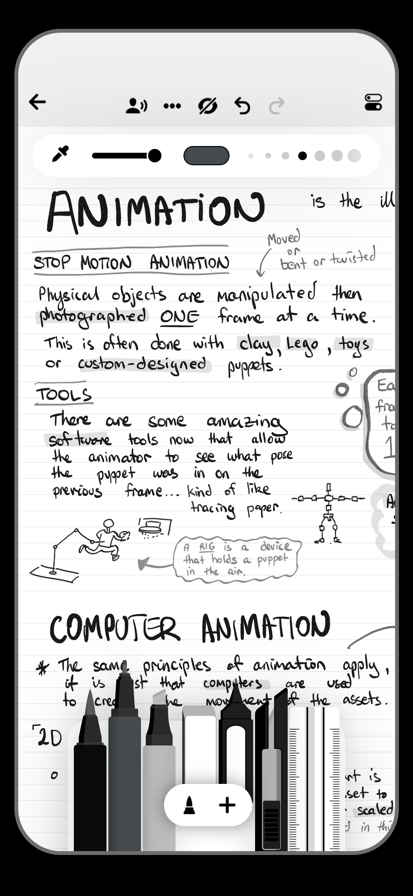 ANIMATION is the ill
STOP MOTION ANIMATION
Moved
or
bent or twisted
Physical objects are manipulated then
photographed ONE frame at a time.
This is often done with clay, Lego, toys
or custom-designed puppets.
TOOLS
There are some amazing
software tools now that allow
the animator to see what pose
the puppet was in on the
previous frame... kind of like
tracing paper.
Ea
fra
to
1
A RIG is a device
that holds a puppet
in the air.
COMPUTER ANIMATION
* The same principles of animation apply,
it is that computers are used
to the movement of the assets.
2D
is
set to
scaled
in thi